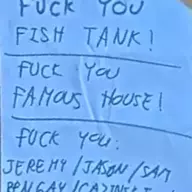 FUCK YOU
FISH TANK!
FUCK YOU
FAMOUS HOUSE!
FUCK YOU:
JEREMY/JASON/SAM